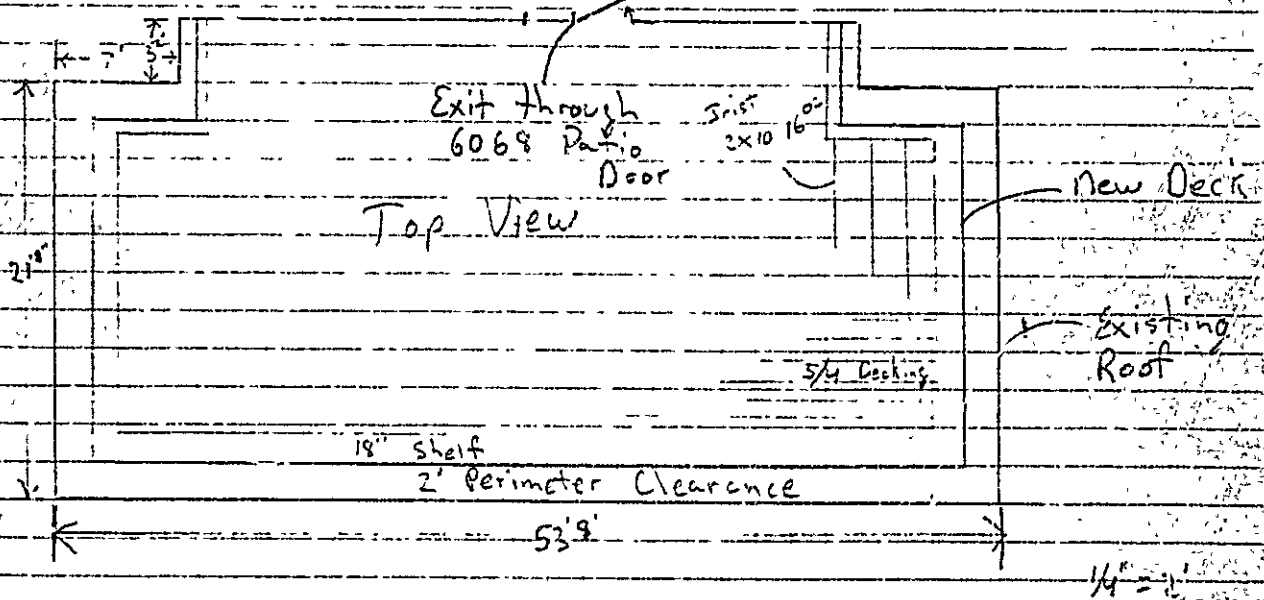 7'
5'
Exit through
6068 Patio
Door
Joist
2x10 16"
Top View
New Deck
21'8"
Existing
Roof
5/4 Decking
18" Shelf
2' Perimeter Clearance
53'8'